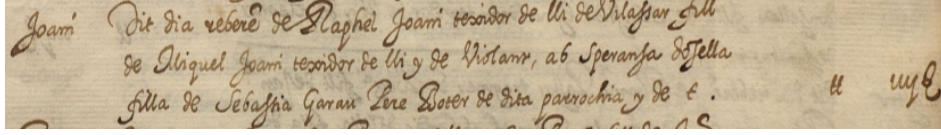 Joani Dit dia rebere de Raphel Joani texidor de lli de Vilassar fill
de Miquel Joani texidor de lli y de Violant, ab Speransa dosella
filla de Sebastia Garau Pere Boter de dita parrochia y de t.